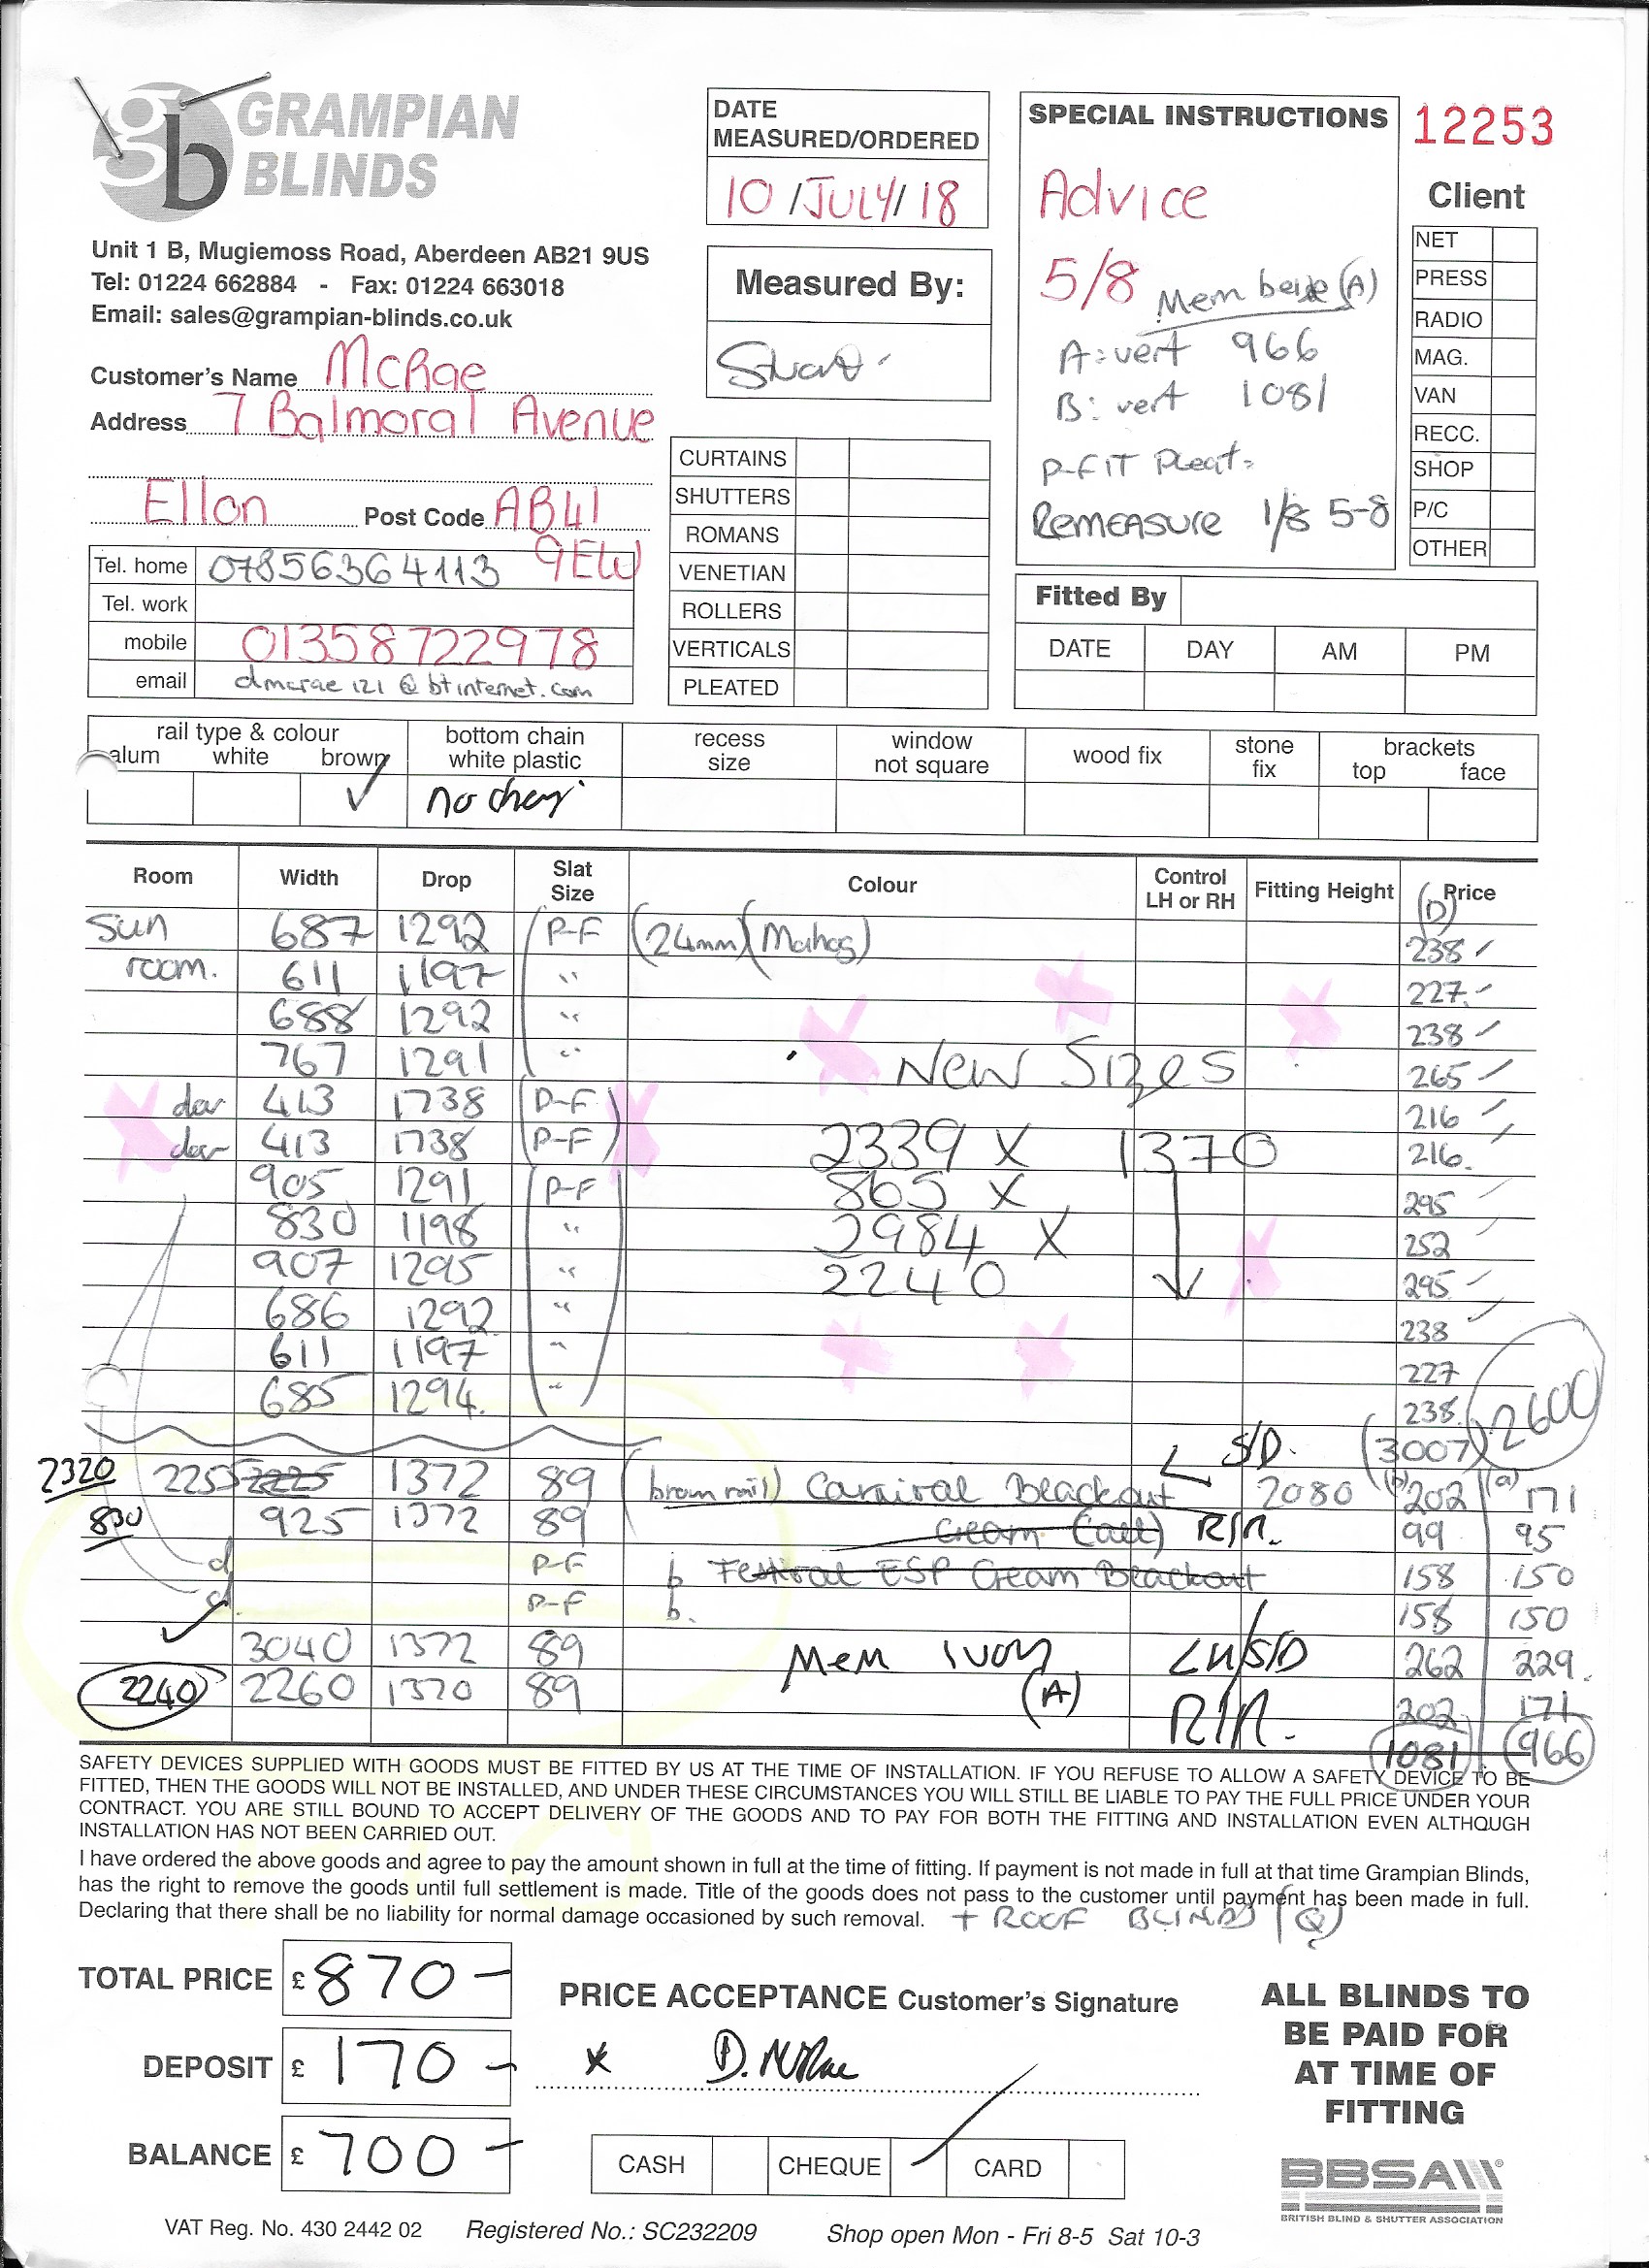 GRAMPIAN
BLINDS
Unit 1 B, Mugiemoss Road, Aberdeen AB21 9US
Tel: 01224 662884 - Fax: 01224 663018
Email: sales@grampian-blinds.co.uk
Customer's Name McRae
Address 7 Balmoral Avenue
Ellon Post Code AB41 9EW
Tel. home 07856364113
Tel. work
mobile 01358722978
email dmcrae121@btinternet.com
DATE
MEASURED/ORDERED
10/JULY/18
Measured By:
CURTAINS
SHUTTERS
ROMANS
VENETIAN
ROLLERS
VERTICALS
PLEATED
SPECIAL INSTRUCTIONS
Advice
5/8 Mem beige (A)
A: vert 966
B: vert 1081
P-FIT Pleat
REMEASURE 1/8 5-8
12253
Client
NET
PRESS
RADIO
MAG.
VAN
RECC.
SHOP
P/C
OTHER
Fitted By
DATE DAY AM PM
rail type & colour
alum white brown ✓
bottom chain
white plastic
no
recess
size
window
not square
wood fix
stone
fix
brackets
top face
Room Width Drop Slat Size Colour Control LH or RH Fitting Height Price
(D)
Sun 687 1292 P-F (24mm)(Mahog) 238
room. 611 1197 " 227
688 1292 " 238
767 1291 " New Sizes 265
413 1738 P-F 216
413 1738 P-F 2339 X 1370 216
905 1291 P-F 865 X 295
830 1198 " 2984 X 252
907 1295 " 2240 295
686 1292 " 238
611 1197 " 227
685 1294 " 238
S/D. (3007) 2600
2320 2255 2225 1372 89 (brown rail) Carnival Blackout 2080 (b) 202 (a) 171
830 925 1372 89 Cream (all) R/R. 99 95
d P-F b Festival ESP Cream Blackout 158 150
d P-F b. 158 150
3040 1372 89 Mem Ivory LH/S/D 262 229
2240 2260 1370 89 (A) R/R. 202 171
1081 966
SAFETY DEVICES SUPPLIED WITH GOODS MUST BE FITTED BY US AT THE TIME OF INSTALLATION. IF YOU REFUSE TO ALLOW A SAFETY DEVICE TO BE
FITTED, THEN THE GOODS WILL NOT BE INSTALLED, AND UNDER THESE CIRCUMSTANCES YOU WILL STILL BE LIABLE TO PAY THE FULL PRICE UNDER YOUR
CONTRACT. YOU ARE STILL BOUND TO ACCEPT DELIVERY OF THE GOODS AND TO PAY FOR BOTH THE FITTING AND INSTALLATION EVEN ALTHOUGH
INSTALLATION HAS NOT BEEN CARRIED OUT.
I have ordered the above goods and agree to pay the amount shown in full at the time of fitting. If payment is not made in full at that time Grampian Blinds,
has the right to remove the goods until full settlement is made. Title of the goods does not pass to the customer until payment has been made in full.
Declaring that there shall be no liability for normal damage occasioned by such removal. + ROOF BLINDS (Q)
TOTAL PRICE £870-
DEPOSIT £170-
BALANCE £700-
PRICE ACCEPTANCE Customer's Signature
x D. McRae
CASH CHEQUE CARD
ALL BLINDS TO
BE PAID FOR
AT TIME OF
FITTING
BBSA
BRITISH BLIND & SHUTTER ASSOCIATION
VAT Reg. No. 430 2442 02 Registered No.: SC232209 Shop open Mon - Fri 8-5 Sat 10-3